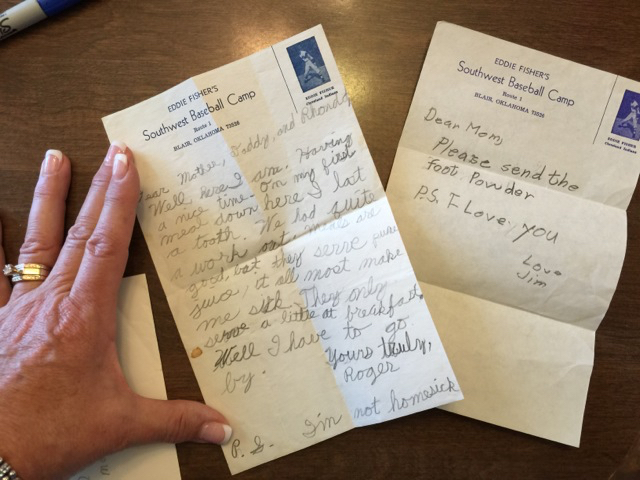 EDDIE FISHER'S
Southwest Baseball Camp
Route 1
BLAIR, OKLAHOMA 73526
EDDIE FISHER
Cleveland Indians
Dear Mother, Daddy, and Rhonda
Well here I am. Having
a nice time. On my first
meal down here I last
a tooth. We had quite
a work out. Meals are
good but they serve pure
juice, it all most make
me sick. They only
serve a little at breakfast.
Well I have to go
by.
Yours truly,
Roger
P.S. I'm not homesick
EDDIE FISHER'S
Southwest Baseball Camp
Route 1
BLAIR, OKLAHOMA 73526
EDDIE FISHER
Cleveland Indians
Dear Mom,
Please send the
foot Powder
P.S. I Love you
Love
Jim